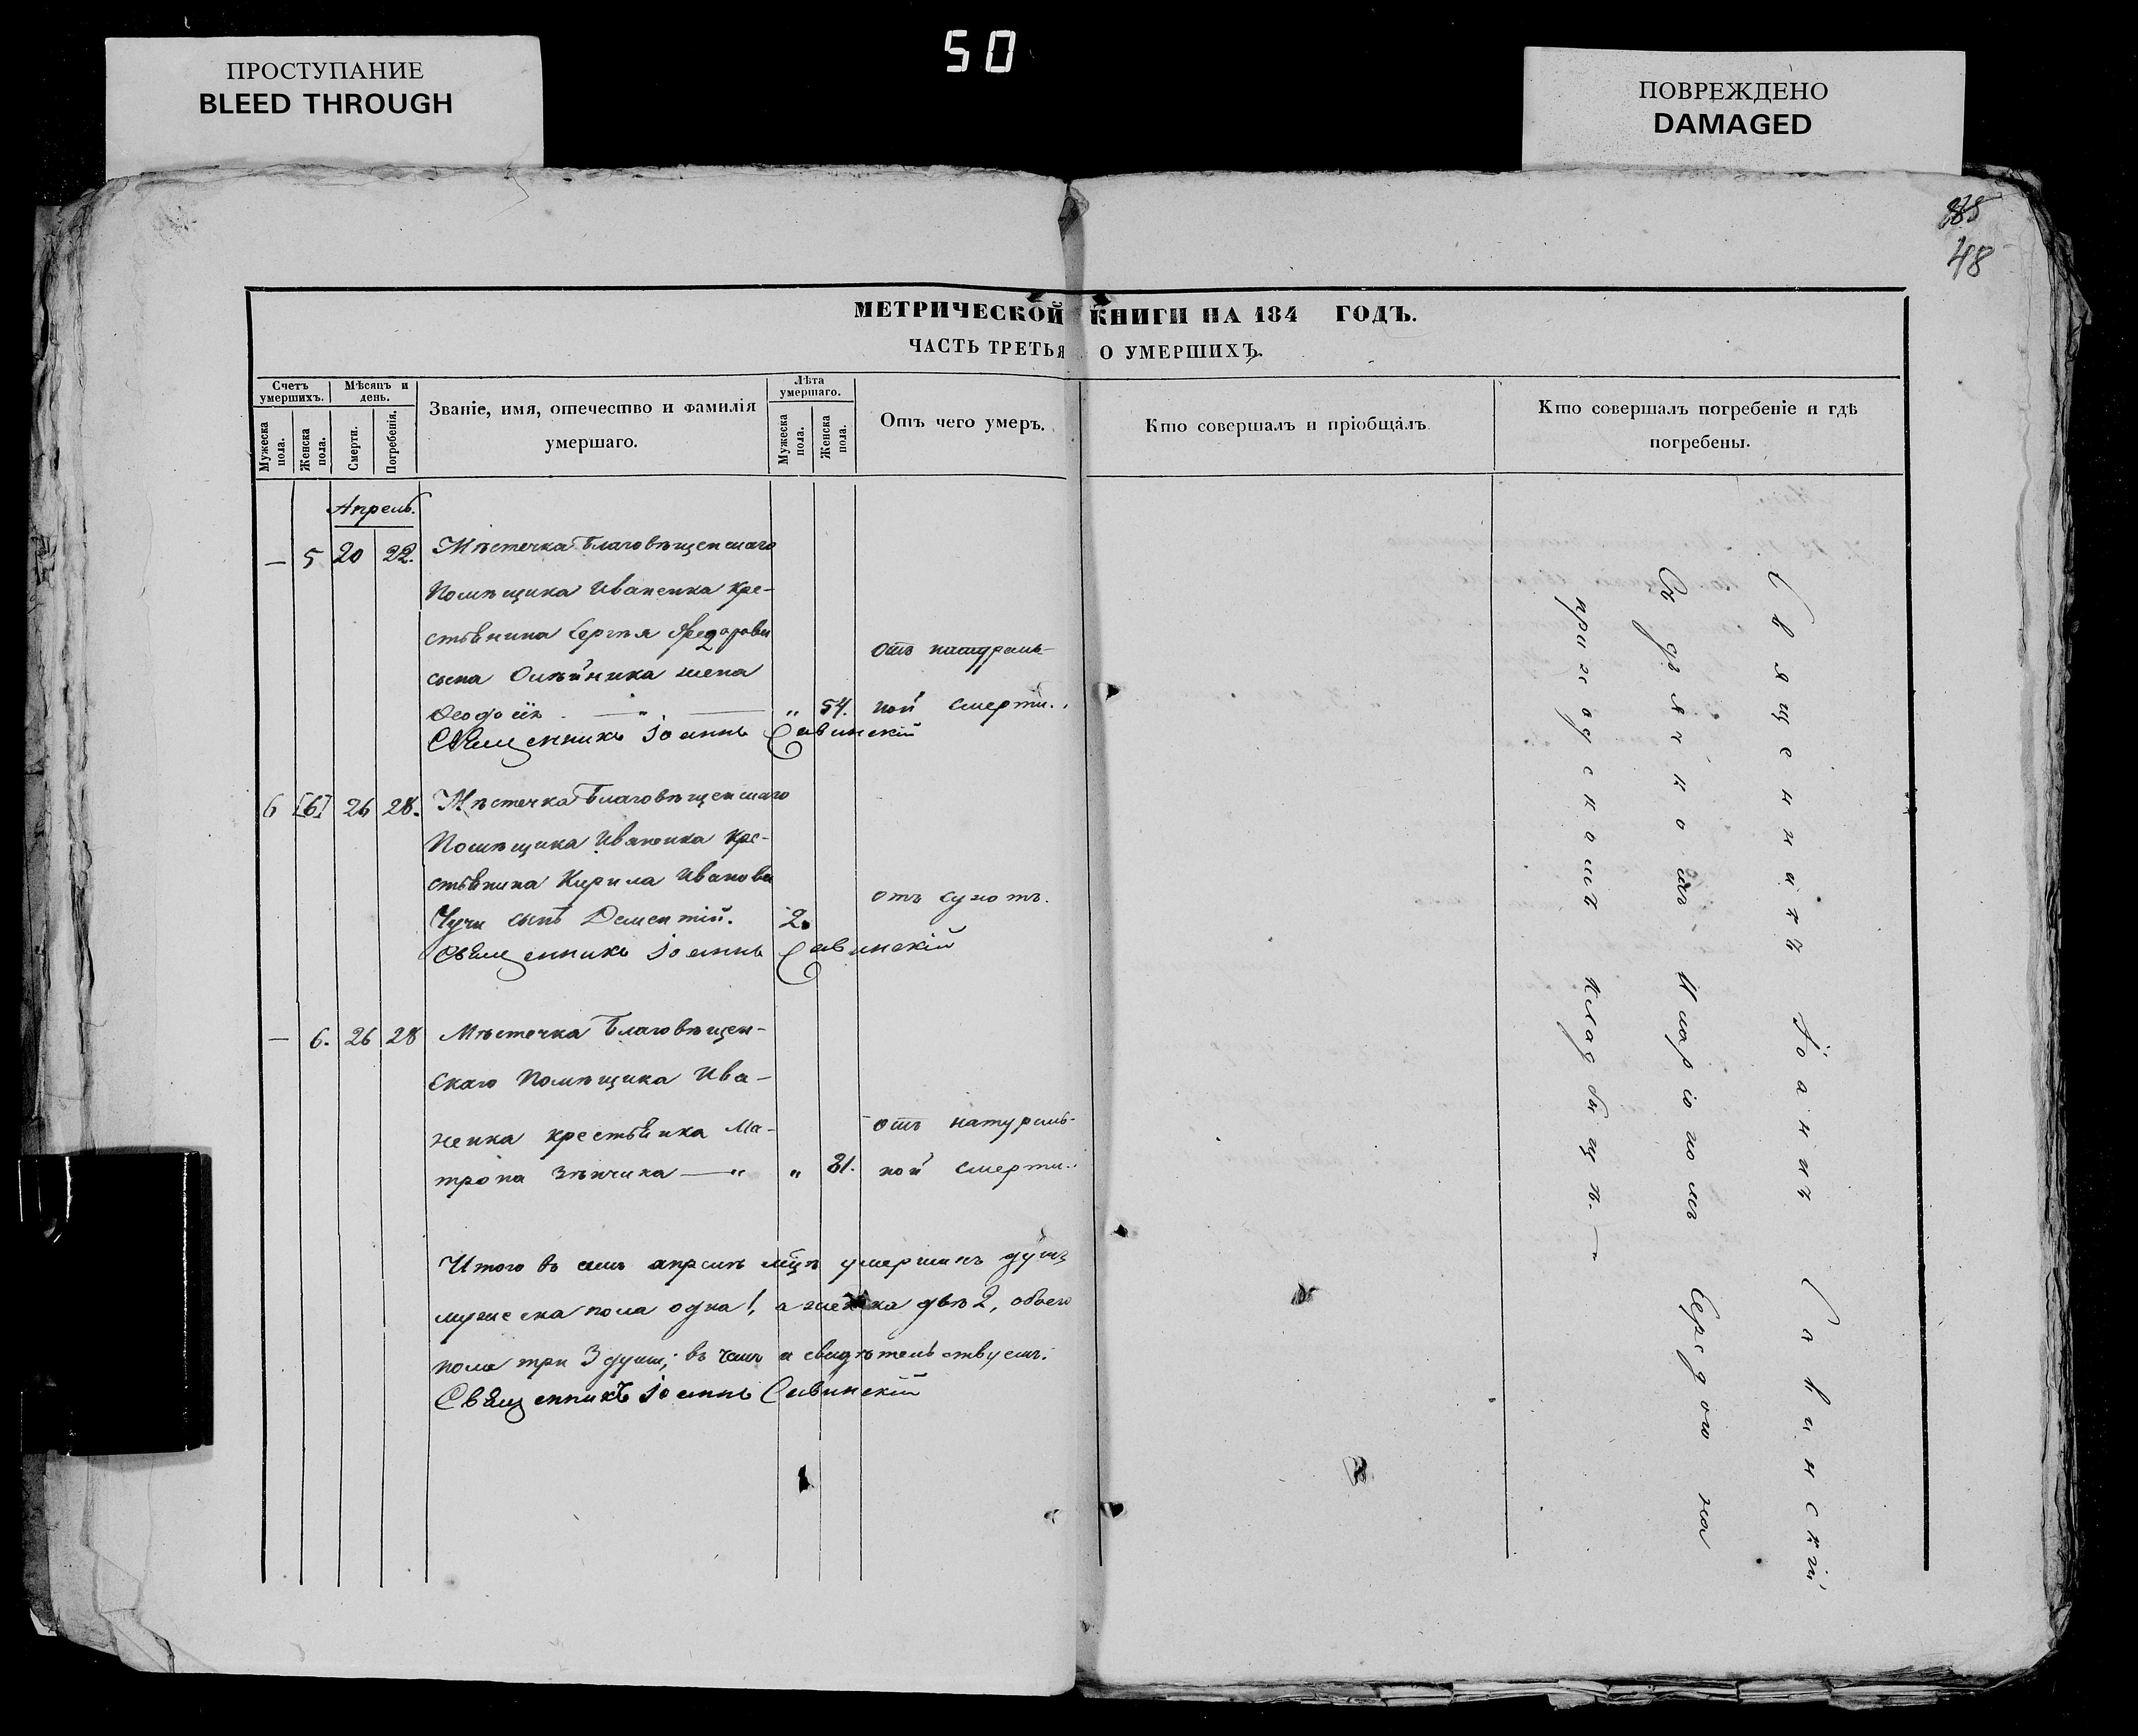 ПРОСТУПАНИЕ
BLEED THROUGH
50
ПОВРЕЖДЕНО
DAMAGED
48
МЕТРИЧЕСКОЙ КНИГИ НА 184 ГОДЪ.
ЧАСТЬ ТРЕТЬЯ О УМЕРШИХЪ.
Счетъ умершихъ.
Мѣсяцъ и день.
Званіе, имя, отечество и фамилія умершаго.
Лѣта умершаго.
Отъ чего умеръ.
Кто совершалъ и пріобщалъ
Кто совершалъ погребеніе и гдѣ погребены.
Мужеска пола.
Женска пола.
Смерти.
Погребенія.
Мужеска пола.
Женска пола.
Апрель.
— 5 20 22. Мѣстечка Благовѣщенскаго
Помѣщика Иваненка кре-
стьянина Сергѣя Федорова
сына Олѣйника жена
Феодосія — „ — „ 54.
отъ натураль-
ной смерти.
Священникъ Іоаннъ Савинскій
6 [6] 26 28. Мѣстечка Благовѣщенскаго
Помѣщика Иваненка Кре-
стьянина Кирила Иванова
Чучи сынъ Дементій. 2.
отъ сухотъ.
Священникъ Іоаннъ Савинскій
— 6. 26 28 Мѣстечка Благовѣщен-
скаго Помѣщика Ива-
ненка крестьянка Ма-
трона Зѣнчика — „ „ 81.
отъ натураль-
ной смерти.
Итого въ семъ апрелѣ мцѣ умершихъ душъ
мужеска пола одна 1, а женска двѣ 2, обоего
пола три 3 души; въ чемъ и свидѣтельствуемъ.
Священникъ Іоаннъ Савинскій
Священникъ Іоаннъ Савинскій
Съ дячкомъ Иларіономъ Середою на
приходскомъ кладбищѣ. —